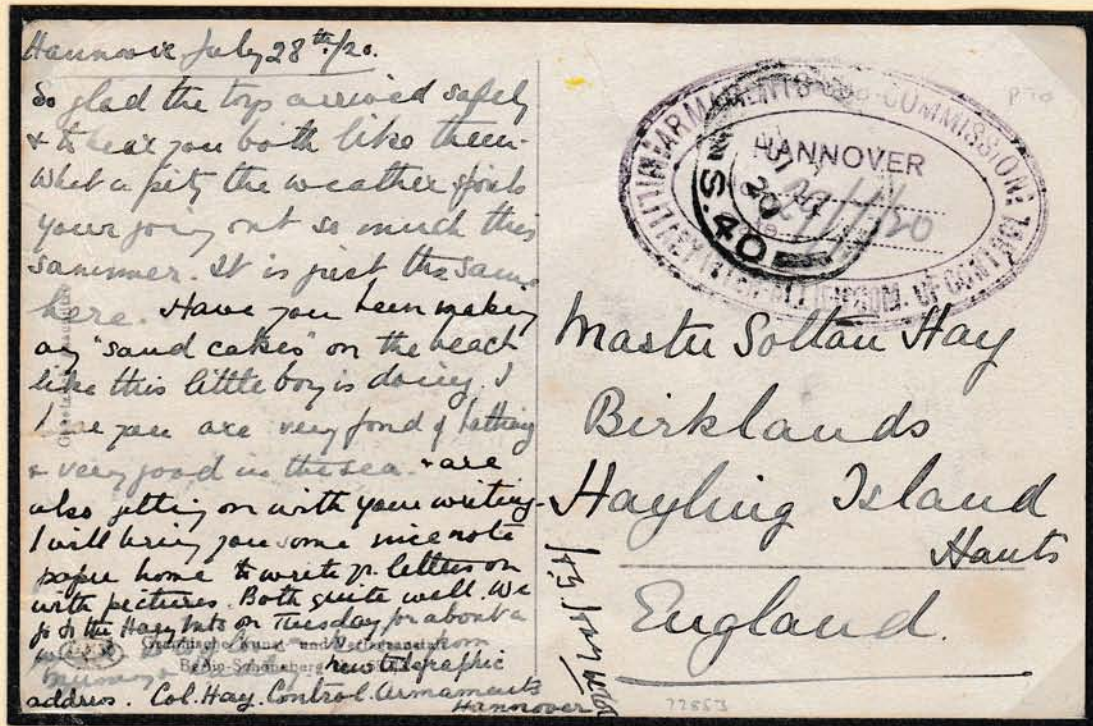 Hannover July 28th/20.
So glad the toys arrived safely
& to hear you both like them.
What a pity the weather spoils
your going out so much this
summer. It is just the same
here. Have you been making
any "sand cakes" on the beach
like this little boy is doing. I
hear you are very fond of bathing
& very good in the sea. & are
also getting on with your writing.
I will bring you some nice note
paper home to write yr letters on
with pictures. Both quite well. We
go to the on Tuesday for about a
from
Mummy & Daddy. new telegraphic
address. Col. Hay. Control. Armaments
Hannover
Graphische Kunst- und Verlagsanstalt
Berlin-Schöneberg
ARMAMENTS SUB-COMMISSION
HANNOVER
29/7/20
COM. OF CONTROL
S.40
20
Master Soltau Hay
Birklands
Hayling Island
Hants
England.
77853